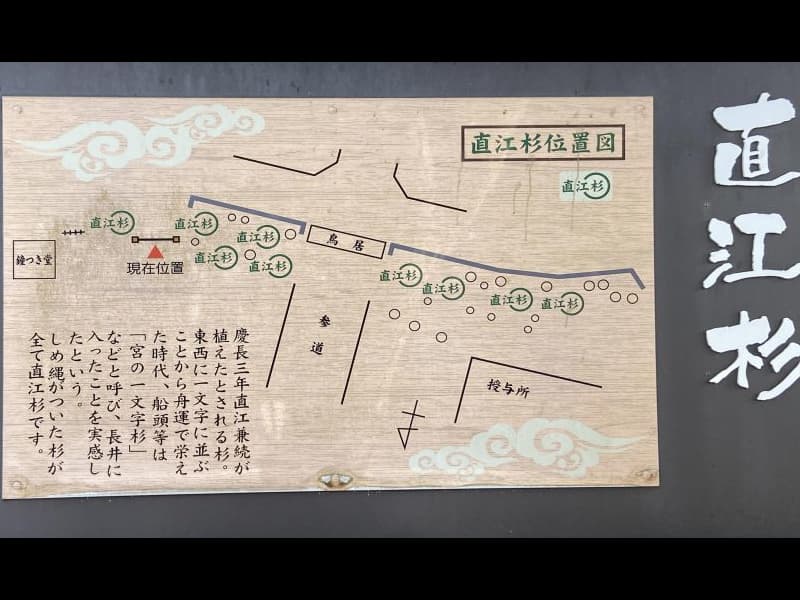 直江杉
直江杉位置図
直江杉
直江杉
直江杉
直江杉
直江杉
直江杉
鳥居
直江杉
直江杉
直江杉
直江杉
鐘つき堂
現在位置
参道
授与所
慶長三年直江兼続が
植えたとされる杉。
東西に一文字に並ぶ
ことから舟運で栄え
た時代、船頭等は
「宮の一文字杉」
などと呼び、長井に
入ったことを実感し
たという。
しめ縄がついた杉が
全て直江杉です。